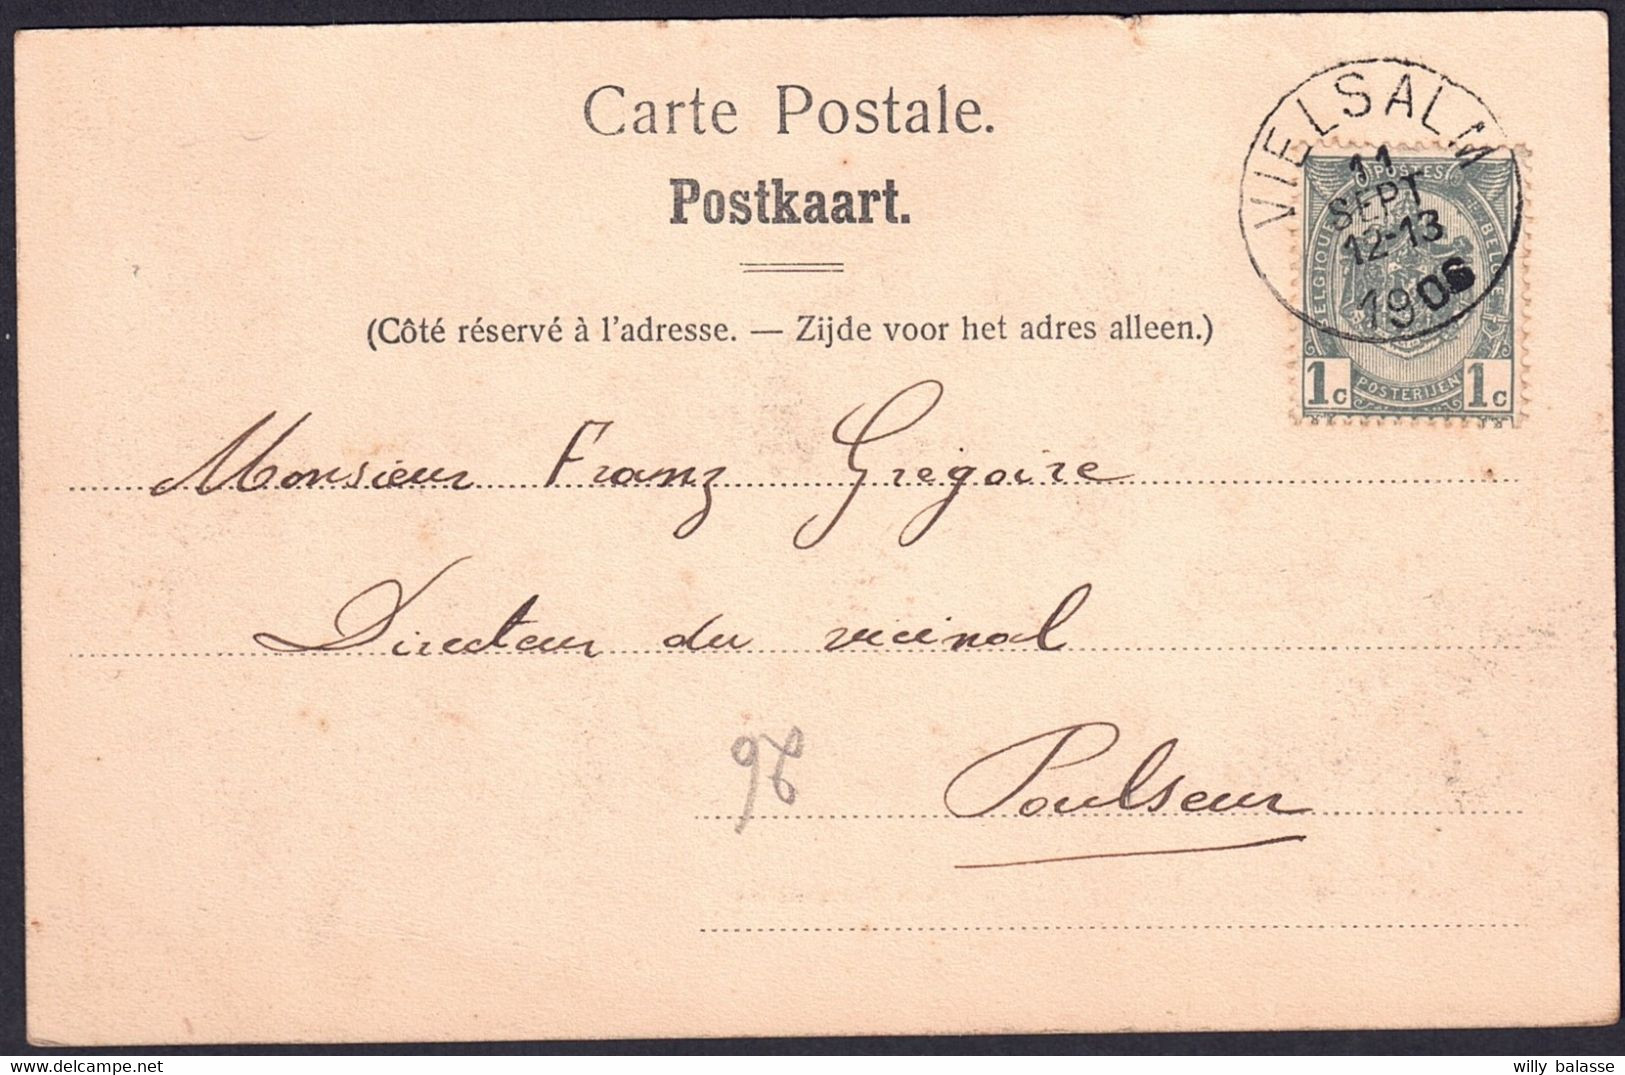 Carte Postale.
Postkaart.
(Côté réservé à l'adresse. — Zijde voor het adres alleen.)
VIELSALM
11
SEPT
12-13
1906
POSTES
BELGIQUE
BELGIË
1c POSTERIJEN 1c
Monsieur Franz Gregoire
Directeur du vicinal
Poulseur
willy balasse